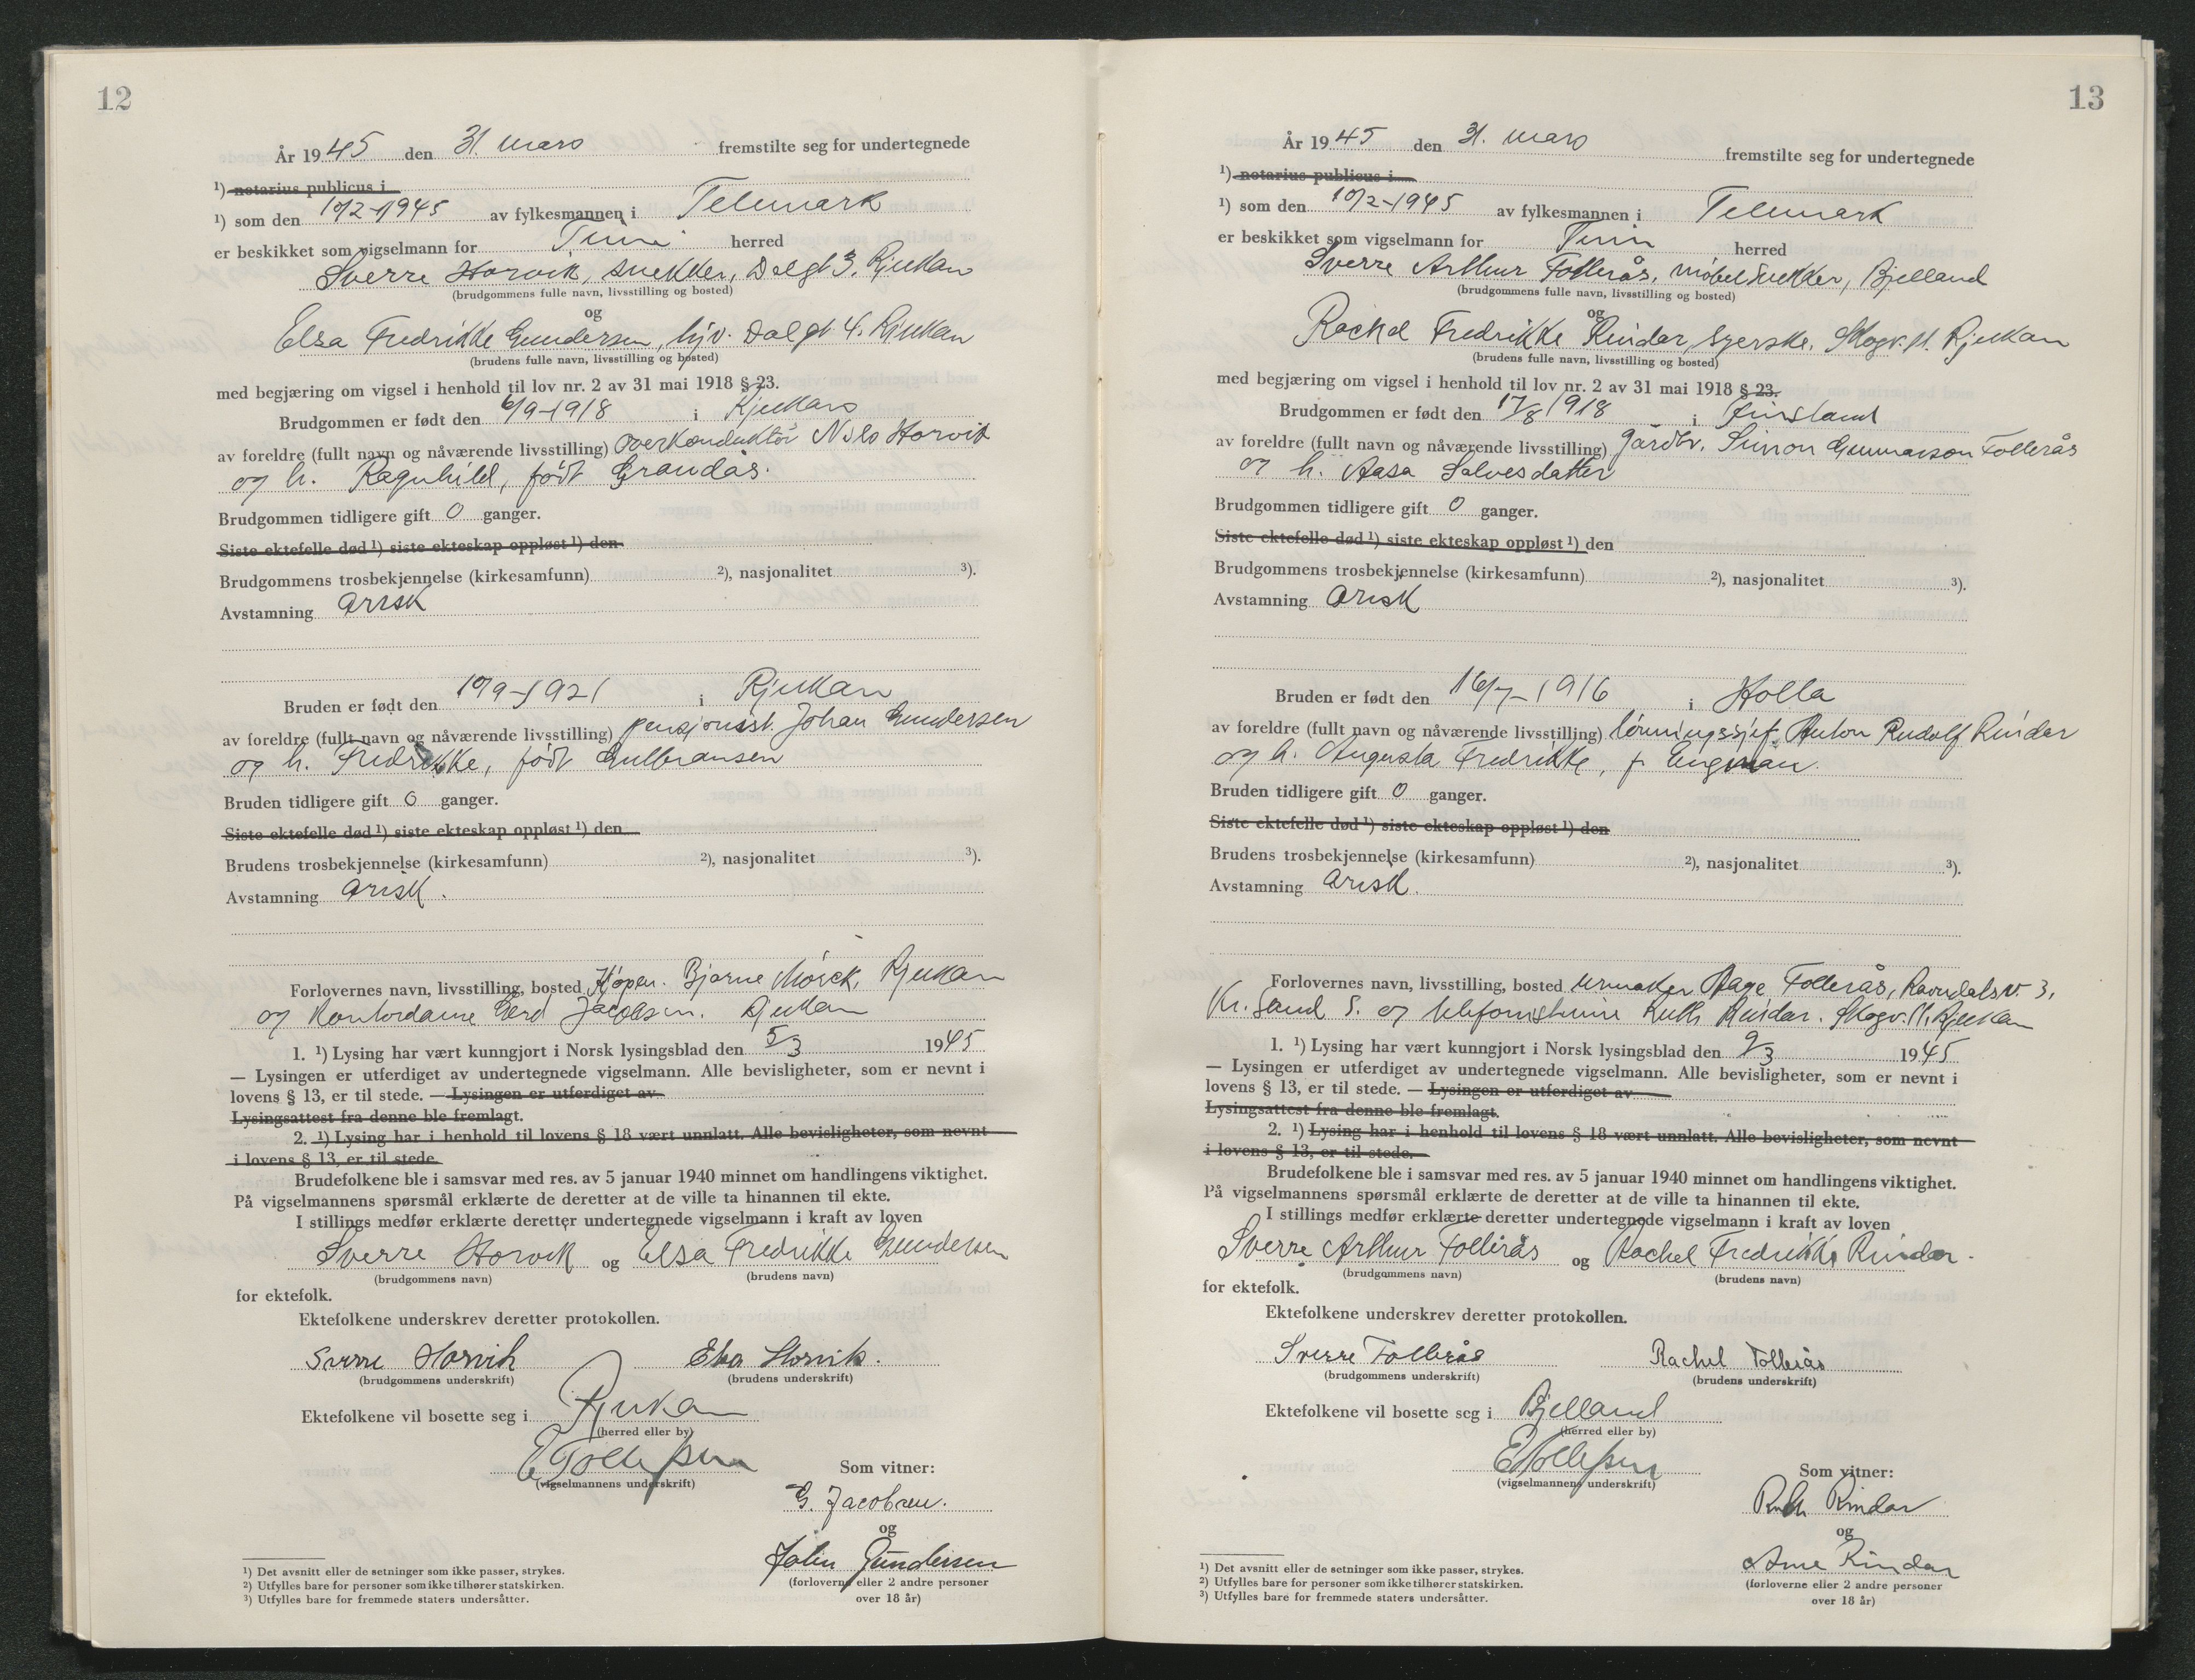 12
År 1945 den 31. mars fremstilte seg for undertegnede
¹) notarius publicus i
¹) som den 10/2-1945 av fylkesmannen i Telemark
er beskikket som vigselmann for Tinn herred
Sverre Horvik, snekker, Dalgt 3. Rjukan
(brudgommens fulle navn, livsstilling og bosted)
og
Elsa Fredrikke Gundersen, hjv. Dalgt 4. Rjukan
(brudens fulle navn, livsstilling og bosted)
med begjæring om vigsel i henhold til lov nr. 2 av 31 mai 1918 § 23.
Brudgommen er født den 6/9-1918 i Rjukan
av foreldre (fullt navn og nåværende livsstilling) overkonduktør Nils Horvik
og h. Ragnhild, født Grandås.
Brudgommen tidligere gift 0 ganger.
Siste ektefelle død ¹) siste ekteskap oppløst ¹) den
Brudgommens trosbekjennelse (kirkesamfunn) ²), nasjonalitet ³).
Avstamning arisk
Bruden er født den 10/9-1921 i Rjukan
av foreldre (fullt navn og nåværende livsstilling) pensjonist Johan Gundersen
og h. Fredrikke, født Gulbransen
Bruden tidligere gift 0 ganger.
Siste ektefelle død ¹) siste ekteskap oppløst ¹) den
Brudens trosbekjennelse (kirkesamfunn) ²), nasjonalitet ³).
Avstamning arisk.
Forlovernes navn, livsstilling, bosted Kjøpm. Bjarne Mørck, Rjukan
og kontordame Gerd Jacobsen. Rjukan
1. ¹) Lysing har vært kunngjort i Norsk lysingsblad den 5/3 1945
— Lysingen er utferdiget av undertegnede vigselmann. Alle bevisligheter, som er nevnt i
lovens § 13, er til stede. — Lysingen er utferdiget av
Lysingsattest fra denne ble fremlagt.
2. ¹) Lysing har i henhold til lovens § 18 vært unnlatt. Alle bevisligheter, som nevnt
i lovens § 13, er til stede.
Brudefolkene ble i samsvar med res. av 5 januar 1940 minnet om handlingens viktighet.
På vigselmannens spørsmål erklærte de deretter at de ville ta hinannen til ekte.
I stillings medfør erklærte deretter undertegnede vigselmann i kraft av loven
Sverre Horvik og Elsa Fredrikke Gundersen
(brudgommens navn) (brudens navn)
for ektefolk.
Ektefolkene underskrev deretter protokollen.
Sverre Horvik Elsa Horvik.
(brudgommens underskrift) (brudens underskrift)
Ektefolkene vil bosette seg i Rjukan
(herred eller by)
E Tollefsen
(vigselmannens underskrift)
Som vitner:
G. Jacobsen.
og
John Gundersen
(forloverne eller 2 andre personer
over 18 år)
¹) Det avsnitt eller de setninger som ikke passer, strykes.
²) Utfylles bare for personer som ikke tilhører statskirken.
³) Utfylles bare for fremmede staters undersåtter.
13
År 1945 den 31. mars fremstilte seg for undertegnede
¹) notarius publicus i
¹) som den 10/2-1945 av fylkesmannen i Telemark
er beskikket som vigselmann for Tinn herred
Sverre Arthur Follerås, møbelsnekker, Bjelland
(brudgommens fulle navn, livsstilling og bosted)
og
Rachel Fredrikke Rindar, syerske, Skogv. 11. Rjukan
(brudens fulle navn, livsstilling og bosted)
med begjæring om vigsel i henhold til lov nr. 2 av 31 mai 1918 § 23.
Brudgommen er født den 17/8 1918 i Finsland
av foreldre (fullt navn og nåværende livsstilling) gårdbr. Simon Gunnarson Follerås
og h. Aasa Salvesdatter
Brudgommen tidligere gift 0 ganger.
Siste ektefelle død ¹) siste ekteskap oppløst ¹) den
Brudgommens trosbekjennelse (kirkesamfunn) ²), nasjonalitet ³).
Avstamning arisk
Bruden er født den 16/7-1916 i Holla
av foreldre (fullt navn og nåværende livsstilling) lønningssjef Anton Rudolf Rindar
og h. Augusta Fredrikke, f. Engman.
Bruden tidligere gift 0 ganger.
Siste ektefelle død ¹) siste ekteskap oppløst ¹) den
Brudens trosbekjennelse (kirkesamfunn) ²), nasjonalitet ³).
Avstamning arisk.
Forlovernes navn, livsstilling, bosted urmaker Aage Follerås, Ravndalsv. 3,
Kr. sand S. og telefonistinne Ruth Rindar. Skogv. 11. Rjukan
1. ¹) Lysing har vært kunngjort i Norsk lysingsblad den 9/3 1945
— Lysingen er utferdiget av undertegnede vigselmann. Alle bevisligheter, som er nevnt i
lovens § 13, er til stede. — Lysingen er utferdiget av
Lysingsattest fra denne ble fremlagt.
2. ¹) Lysing har i henhold til lovens § 18 vært unnlatt. Alle bevisligheter, som nevnt
i lovens § 13, er til stede.
Brudefolkene ble i samsvar med res. av 5 januar 1940 minnet om handlingens viktighet.
På vigselmannens spørsmål erklærte de deretter at de ville ta hinannen til ekte.
I stillings medfør erklærte deretter undertegnede vigselmann i kraft av loven
Sverre Arthur Follerås og Rachel Fredrikke Rindar.
(brudgommens navn) (brudens navn)
for ektefolk.
Ektefolkene underskrev deretter protokollen.
Sverre Follerås Rachel Follerås
(brudgommens underskrift) (brudens underskrift)
Ektefolkene vil bosette seg i Bjelland
(herred eller by)
E Tollefsen
(vigselmannens underskrift)
Som vitner:
Ruth Rindar
og
Arne Rindar
(forloverne eller 2 andre personer
over 18 år)
¹) Det avsnitt eller de setninger som ikke passer, strykes.
²) Utfylles bare for personer som ikke tilhører statskirken.
³) Utfylles bare for fremmede staters undersåtter.